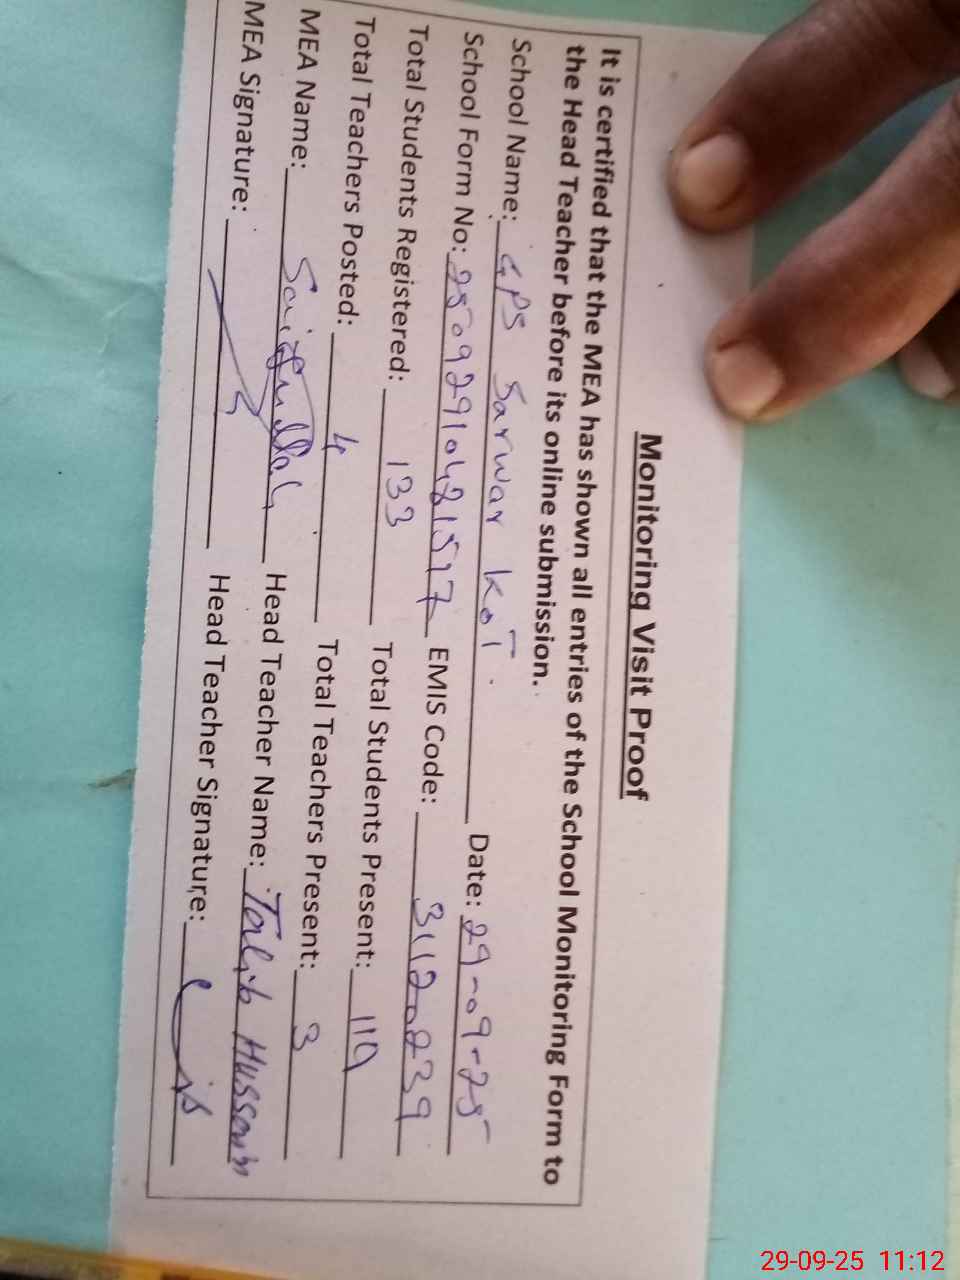 Monitoring Visit Proof
It is certified that the MEA has shown all entries of the School Monitoring Form to
the Head Teacher before its online submission.
School Name: GPS Sarwar Kot. Date: 29-09-25
School Form No: EMIS Code: 31120239
Total Students Registered: 133 Total Students Present: 119
Total Teachers Posted: 4 Total Teachers Present: 3
MEA Name: Saifullah Head Teacher Name: Talib Hussain
MEA Signature: Head Teacher Signature:
29-09-25 11:12